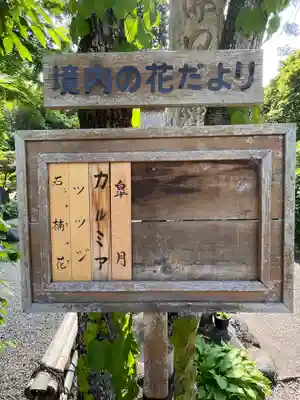 境内の花だより
皐月
カルミア
ツツヅ
石楠花